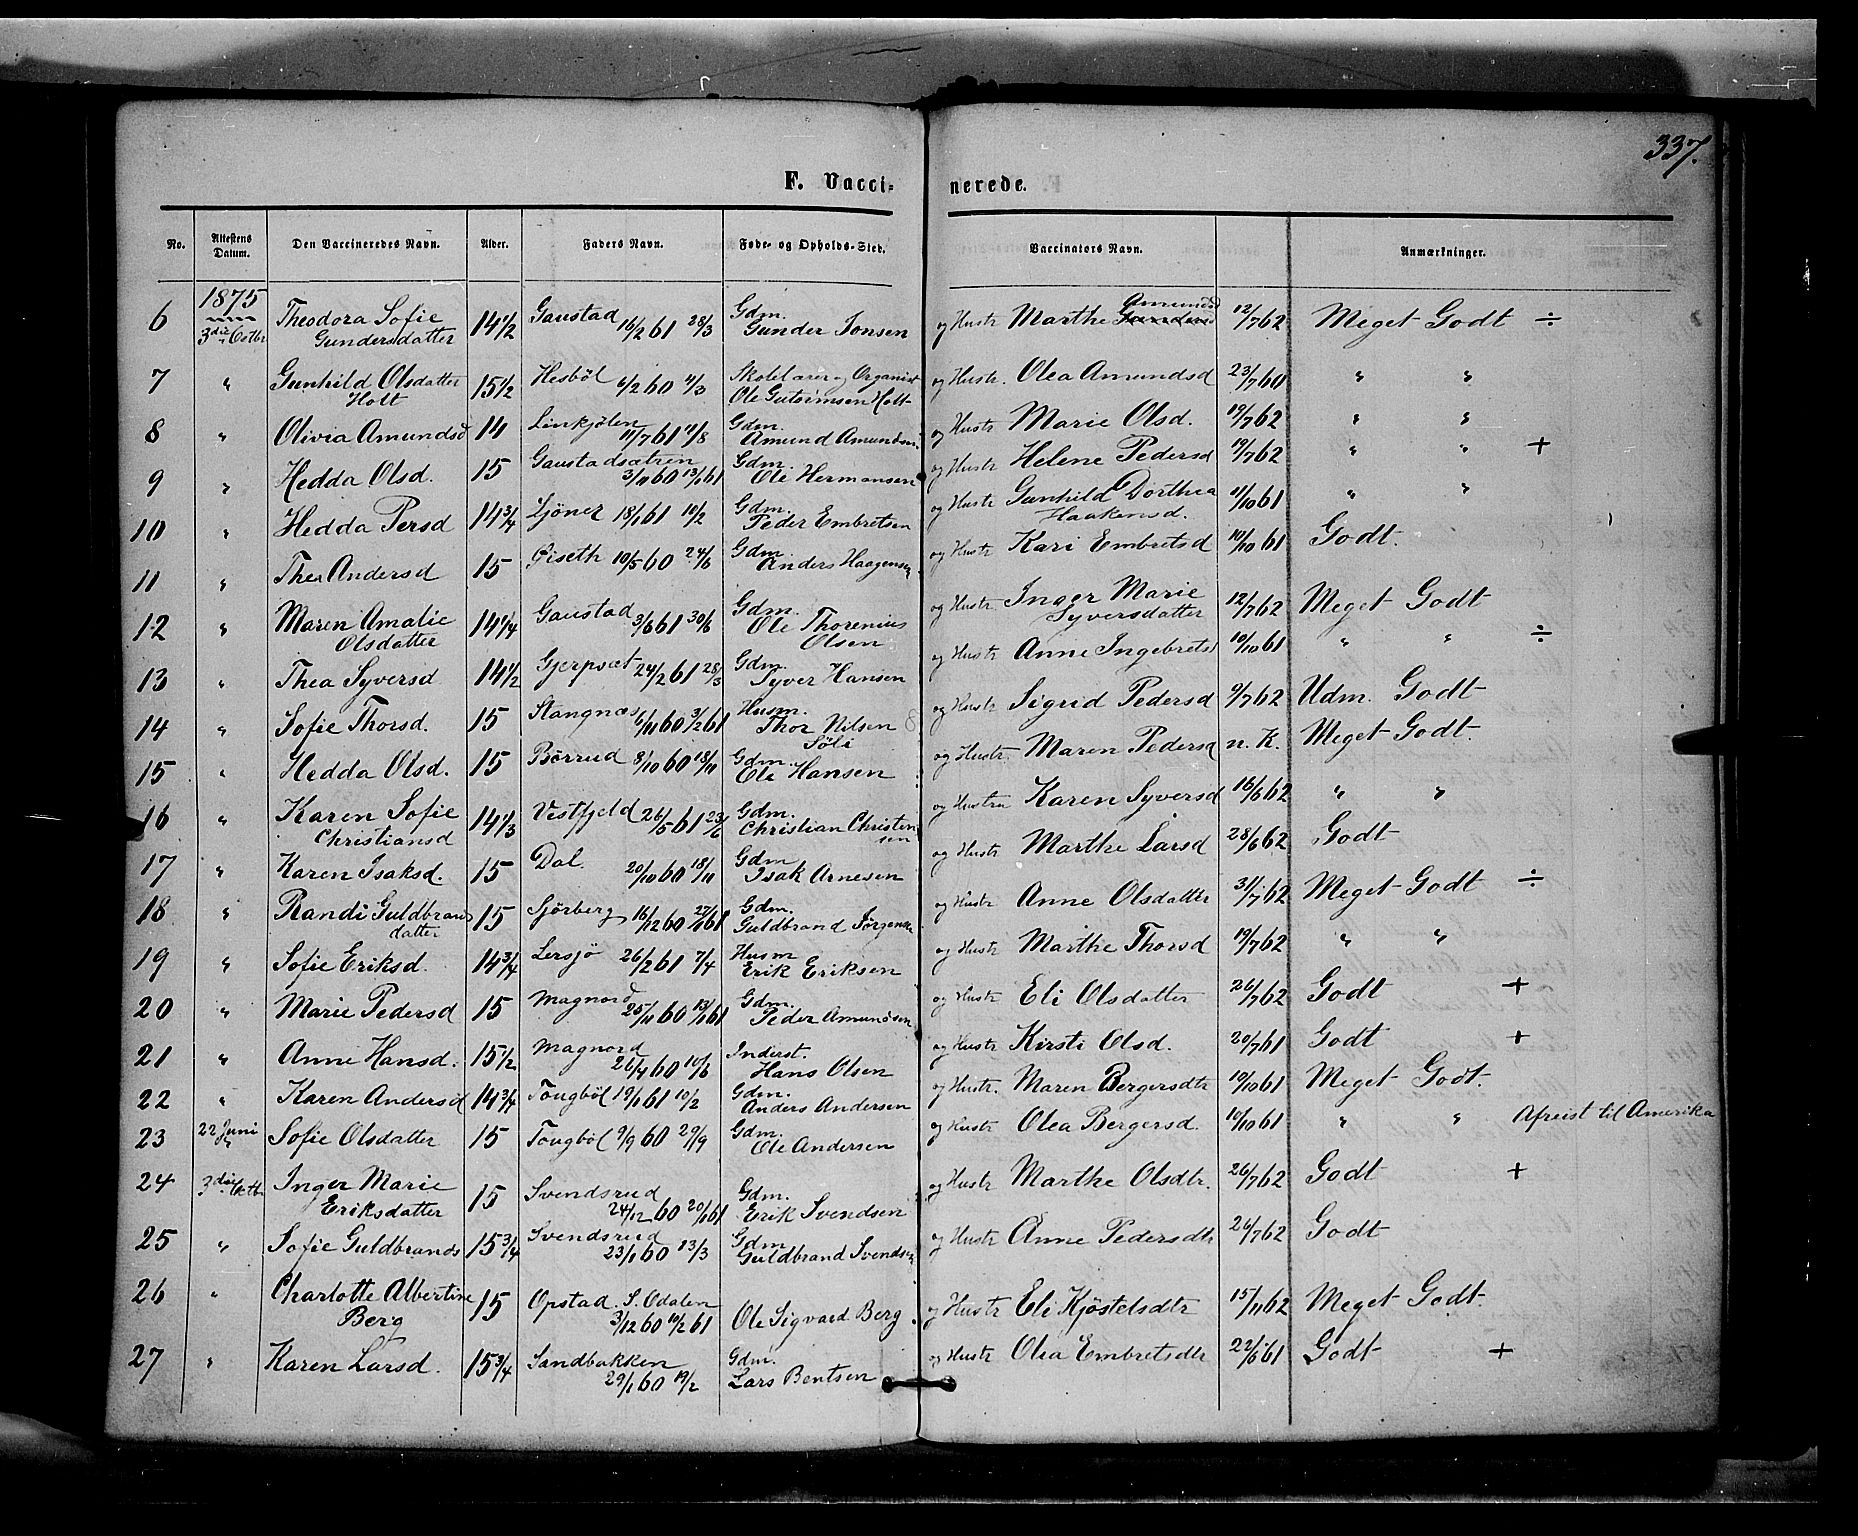 337.
F. Vacci- nerede.
No. Attestens Datum. Den Vaccineredes Navn. Alder. Faders Navn. Føde- og Opholds-Sted. Vaccinators Navn. Anmærkninger.
1875
6 3die Octbr Theodora Sofie Gundersdatter 14 1/2 Gaustad 16/2 61 28/3 Gdm. Gunder Jonsen og Hustr Marthe Amundsd 12/7 62 Meget Godt ÷
7 " Gunhild Olsdatter Holt 15 1/2 Hesböl 6/2 60 11/3 Skolelærer og Organist Ole Gutormsen Holt og Hustr. Olea Amundsd 23/7 60 " "
8 " Olivia Amundsd 14 Linkjölen 11/7 61 11/8 Gdm. Amund Amundsen og Hustr Marie Olsd. 19/7 62 " "
9 " Hedda Olsd. 15 Gaustadsætren 3/11 60 13/1 61 Gdm. Ole Hermansen og Hustr Helene Pedersd 19/7 62 " " +
10 " Hedda Persd 14 3/4 Ljöner 18/1 61 10/2 Gdm. Peder Embretsen og Hustr Gunhild Dorthea Haakensd. 11/10 61 " "
11 " Thea Andersd 15 Øiseth 10/5 60 24/6 Gdm Anders Haagensen og Hustr Kari Embretsd 10/10 61 Godt.
12 " Maren Amalie Olsdatter 14 1/4 Gaustad 3/6 61 30/6 Gdm. Ole Thorenius Olsen og Hustr Inger Marie Syversdatter 12/7 62 Meget Godt
13 " Thea Syversd 14 1/2 Gjerpsæt 24/2 61 28/3 Gdm. Syver Hansen og Hustr Anne Ingebretsd 10/10 61 " " ÷
14 " Sofie Thorsd. 15 Stangnæs 6/11 60 3/2 61 Husm. Thor Nilsen Söli og Hustr Sigrid Pedersd 9/7 62 Udm. Godt
15 " Hedda Olsd. 15 Börrud 8/10 60 18/11 Gdm. Ole Hansen og Hustr. Maren Pedersd n. K. Meget Godt.
16 " Karen Sofie Christiansd 14 1/3 Vestfjeld 26/5 61 23/6 Gdm. Christian Christensen og Hustru Karen Syversd 16/6 62 " "
17 " Karen Isaksd. 15 Dal. 20/10 60 18/11 Gdm Isak Arnesen og Hustr Marthe Larsd 28/6 62 Godt
18 " Randi Guldbrandsdatter 15 Sjörberg 16/12 60 27/1 61 Gdm. Guldbrand Jörgensen og Hustr Anne Olsdatter 31/7 62 Meget Godt ÷
19 " Sofie Eriksd. 14 3/4 Lersjö 26/2 61 7/4 Husm Erik Eriksen og Hustr Marthe Thorsd 19/7 62 " "
20 " Marie Pedersd 15 Magnord 25/11 60 13/1 61 Gdm. Peder Amundsen og Hustr Eli Olsdatter 26/7 62 Godt +
21 " Anne Hansd. 15 1/2 Magnord 26/4 60 10/6 Inderst. Hans Olsen og Hustr Kirsti Olsd. 20/7 61 Godt +
22 " Karen Andersd 14 3/4 Tougböl 19/1 61 10/2 Gdm. Anders Andersen og Hustr. Maren Bergersdtr 10/10 61 Meget Godt.
23 22 Juni Sofie Olsdatter 15 Tougböl 9/9 60 29/9 Gdm. Ole Andersen og Hustr Olea Bergersd. 10/10 61 " " Afreist til Amerika
24 3die Octbr Inger Marie Eriksdatter 15 Svendsrud 24/12 60 20/1 61 Gdm. Erik Svendsen og Hustr Marthe Olsdtr. 26/7 62 Godt +
25 " Sofie Guldbrands 15 3/4 Svendsrud 23/1 60 13/3 Gdm Guldbrand Svendsen og Hustr Anne Pedersdtr 26/7 62 Godt
26 " Charlotte Albertine Berg 15 Opstad. S. Odalen 3/12 60 10/2 61 Ole Sigvard Berg. og Hustr Eli Kjöstelsdtr 15/11 62 Meget Godt.
27 " Karen Larsd. 15 3/4 Sandbakken 29/1 60 19/2 Gdm. Lars Bentsen og Hustr Olea Embretsdtr 22/6 61 Godt +